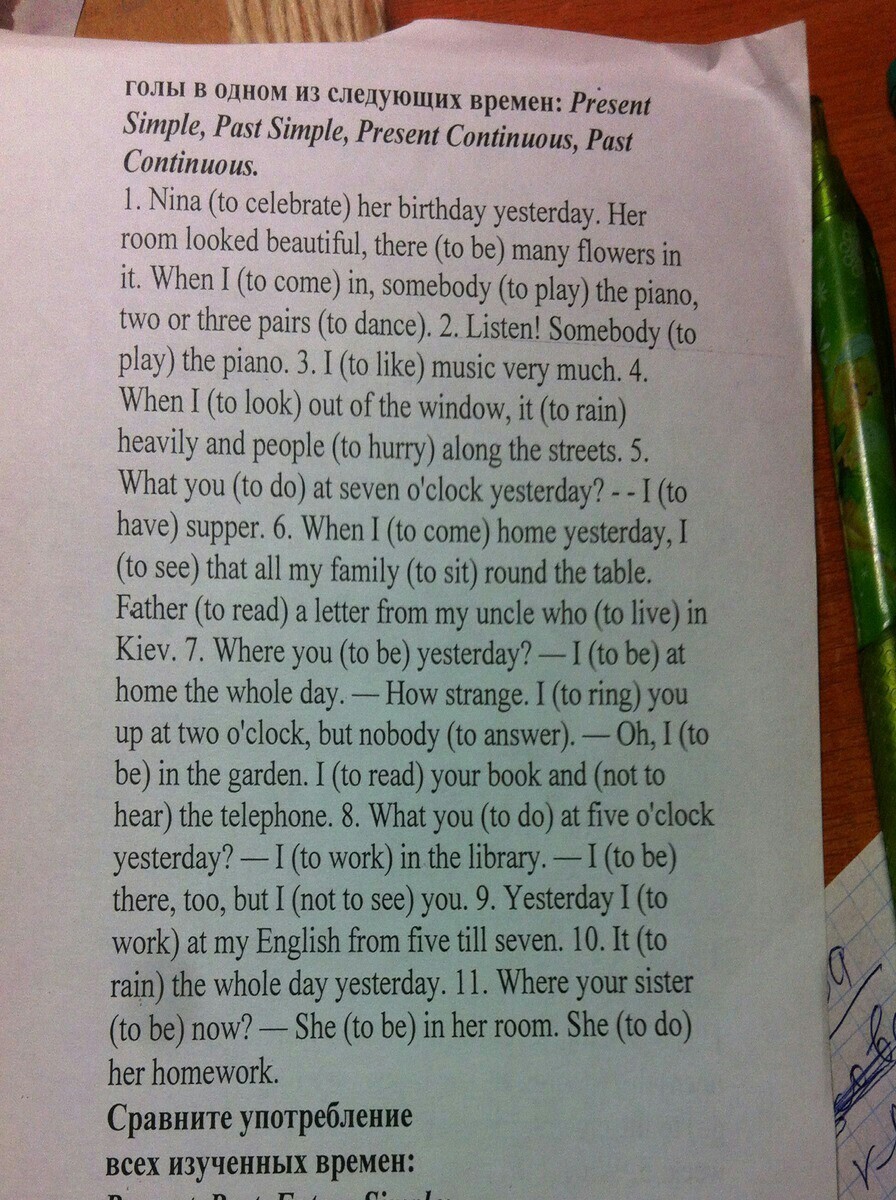 голы в одном из следующих времен: Present
Simple, Past Simple, Present Continuous, Past
Continuous.
1. Nina (to celebrate) her birthday yesterday. Her
room looked beautiful, there (to be) many flowers in
it. When I (to come) in, somebody (to play) the piano,
two or three pairs (to dance). 2. Listen! Somebody (to
play) the piano. 3. I (to like) music very much. 4.
When I (to look) out of the window, it (to rain)
heavily and people (to hurry) along the streets. 5.
What you (to do) at seven o'clock yesterday? - - I (to
have) supper. 6. When I (to come) home yesterday, I
(to see) that all my family (to sit) round the table.
Father (to read) a letter from my uncle who (to live) in
Kiev. 7. Where you (to be) yesterday? — I (to be) at
home the whole day. — How strange. I (to ring) you
up at two o'clock, but nobody (to answer). — Oh, I (to
be) in the garden. I (to read) your book and (not to
hear) the telephone. 8. What you (to do) at five o'clock
yesterday? — I (to work) in the library. — I (to be)
there, too, but I (not to see) you. 9. Yesterday I (to
work) at my English from five till seven. 10. It (to
rain) the whole day yesterday. 11. Where your sister
(to be) now? — She (to be) in her room. She (to do)
her homework.
Сравните употребление
всех изученных времен: